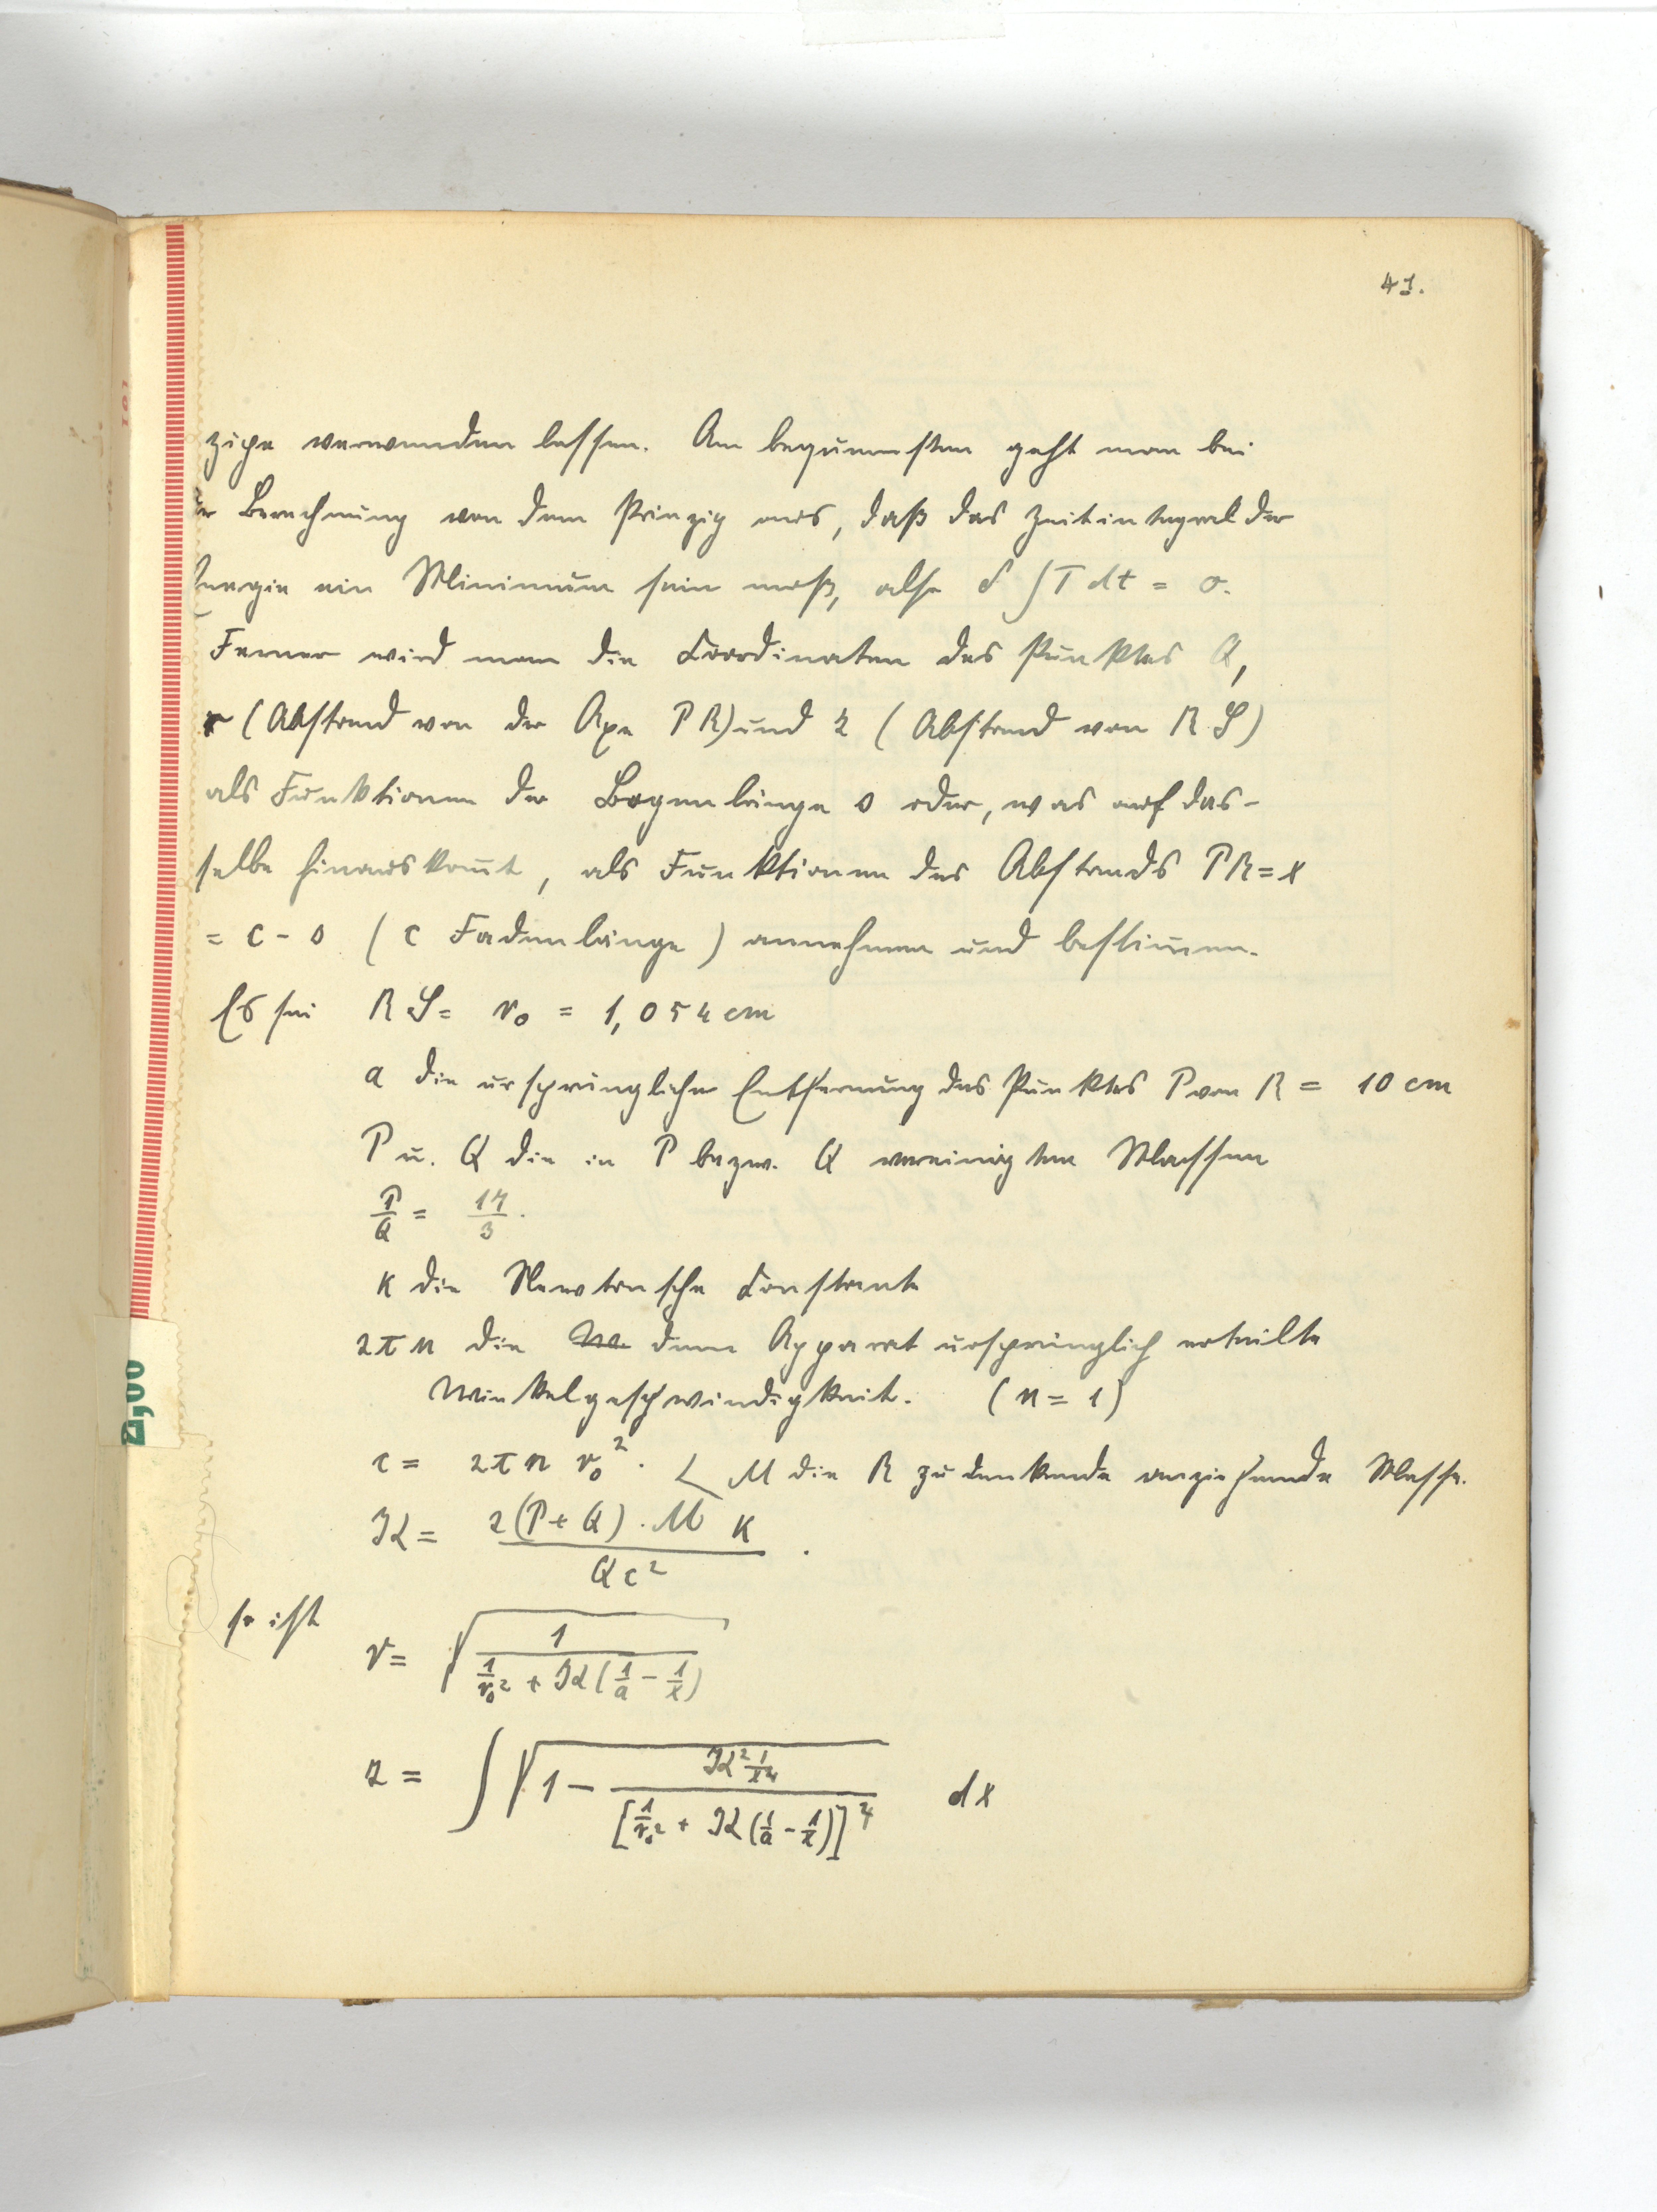 41.
zipe verwenden lassen. Am bequemsten geht man bei
der Berechnung von dem Prinzip aus, daß das Zeitintegral der
Energie ein Minimum sein muß, also δ ∫ T dt = 0.
Ferner wird man die Coordinaten des Punktes Q,
r (Abstand von der Axe PR) und z (Abstand von RS)
als Funktionen der Bogenlänge s oder, was auf das-
selbe hinauskom̅t, als Funktionen des Abstands PR = x
= c - s (c Fadenlänge) annehmen und bestim̅en.
Es sei RS = r₀ = 1,054 cm
a die ursprüngliche Entfernung des Punktes P von R = 10 cm
P u. Q die in P bezw. Q vereinigten Massen
P/Q = 17/3.
κ die Newtonsche Constante
2πn die dem Apparat ursprünglich erteilte
Winkelgeschwindigkeit. (n = 1)
c = 2πn r₀². M die R zu denkende anziehende Masse.
K = 2(P+Q) · M κ / Qc² .
so ist
r = √(1 / (1/r₀² + K(1/a - 1/x)))
z = ∫ √(1 - K² 1/x⁴ / [1/r₀² + K(1/a - 1/x)]⁴) dx
2,00